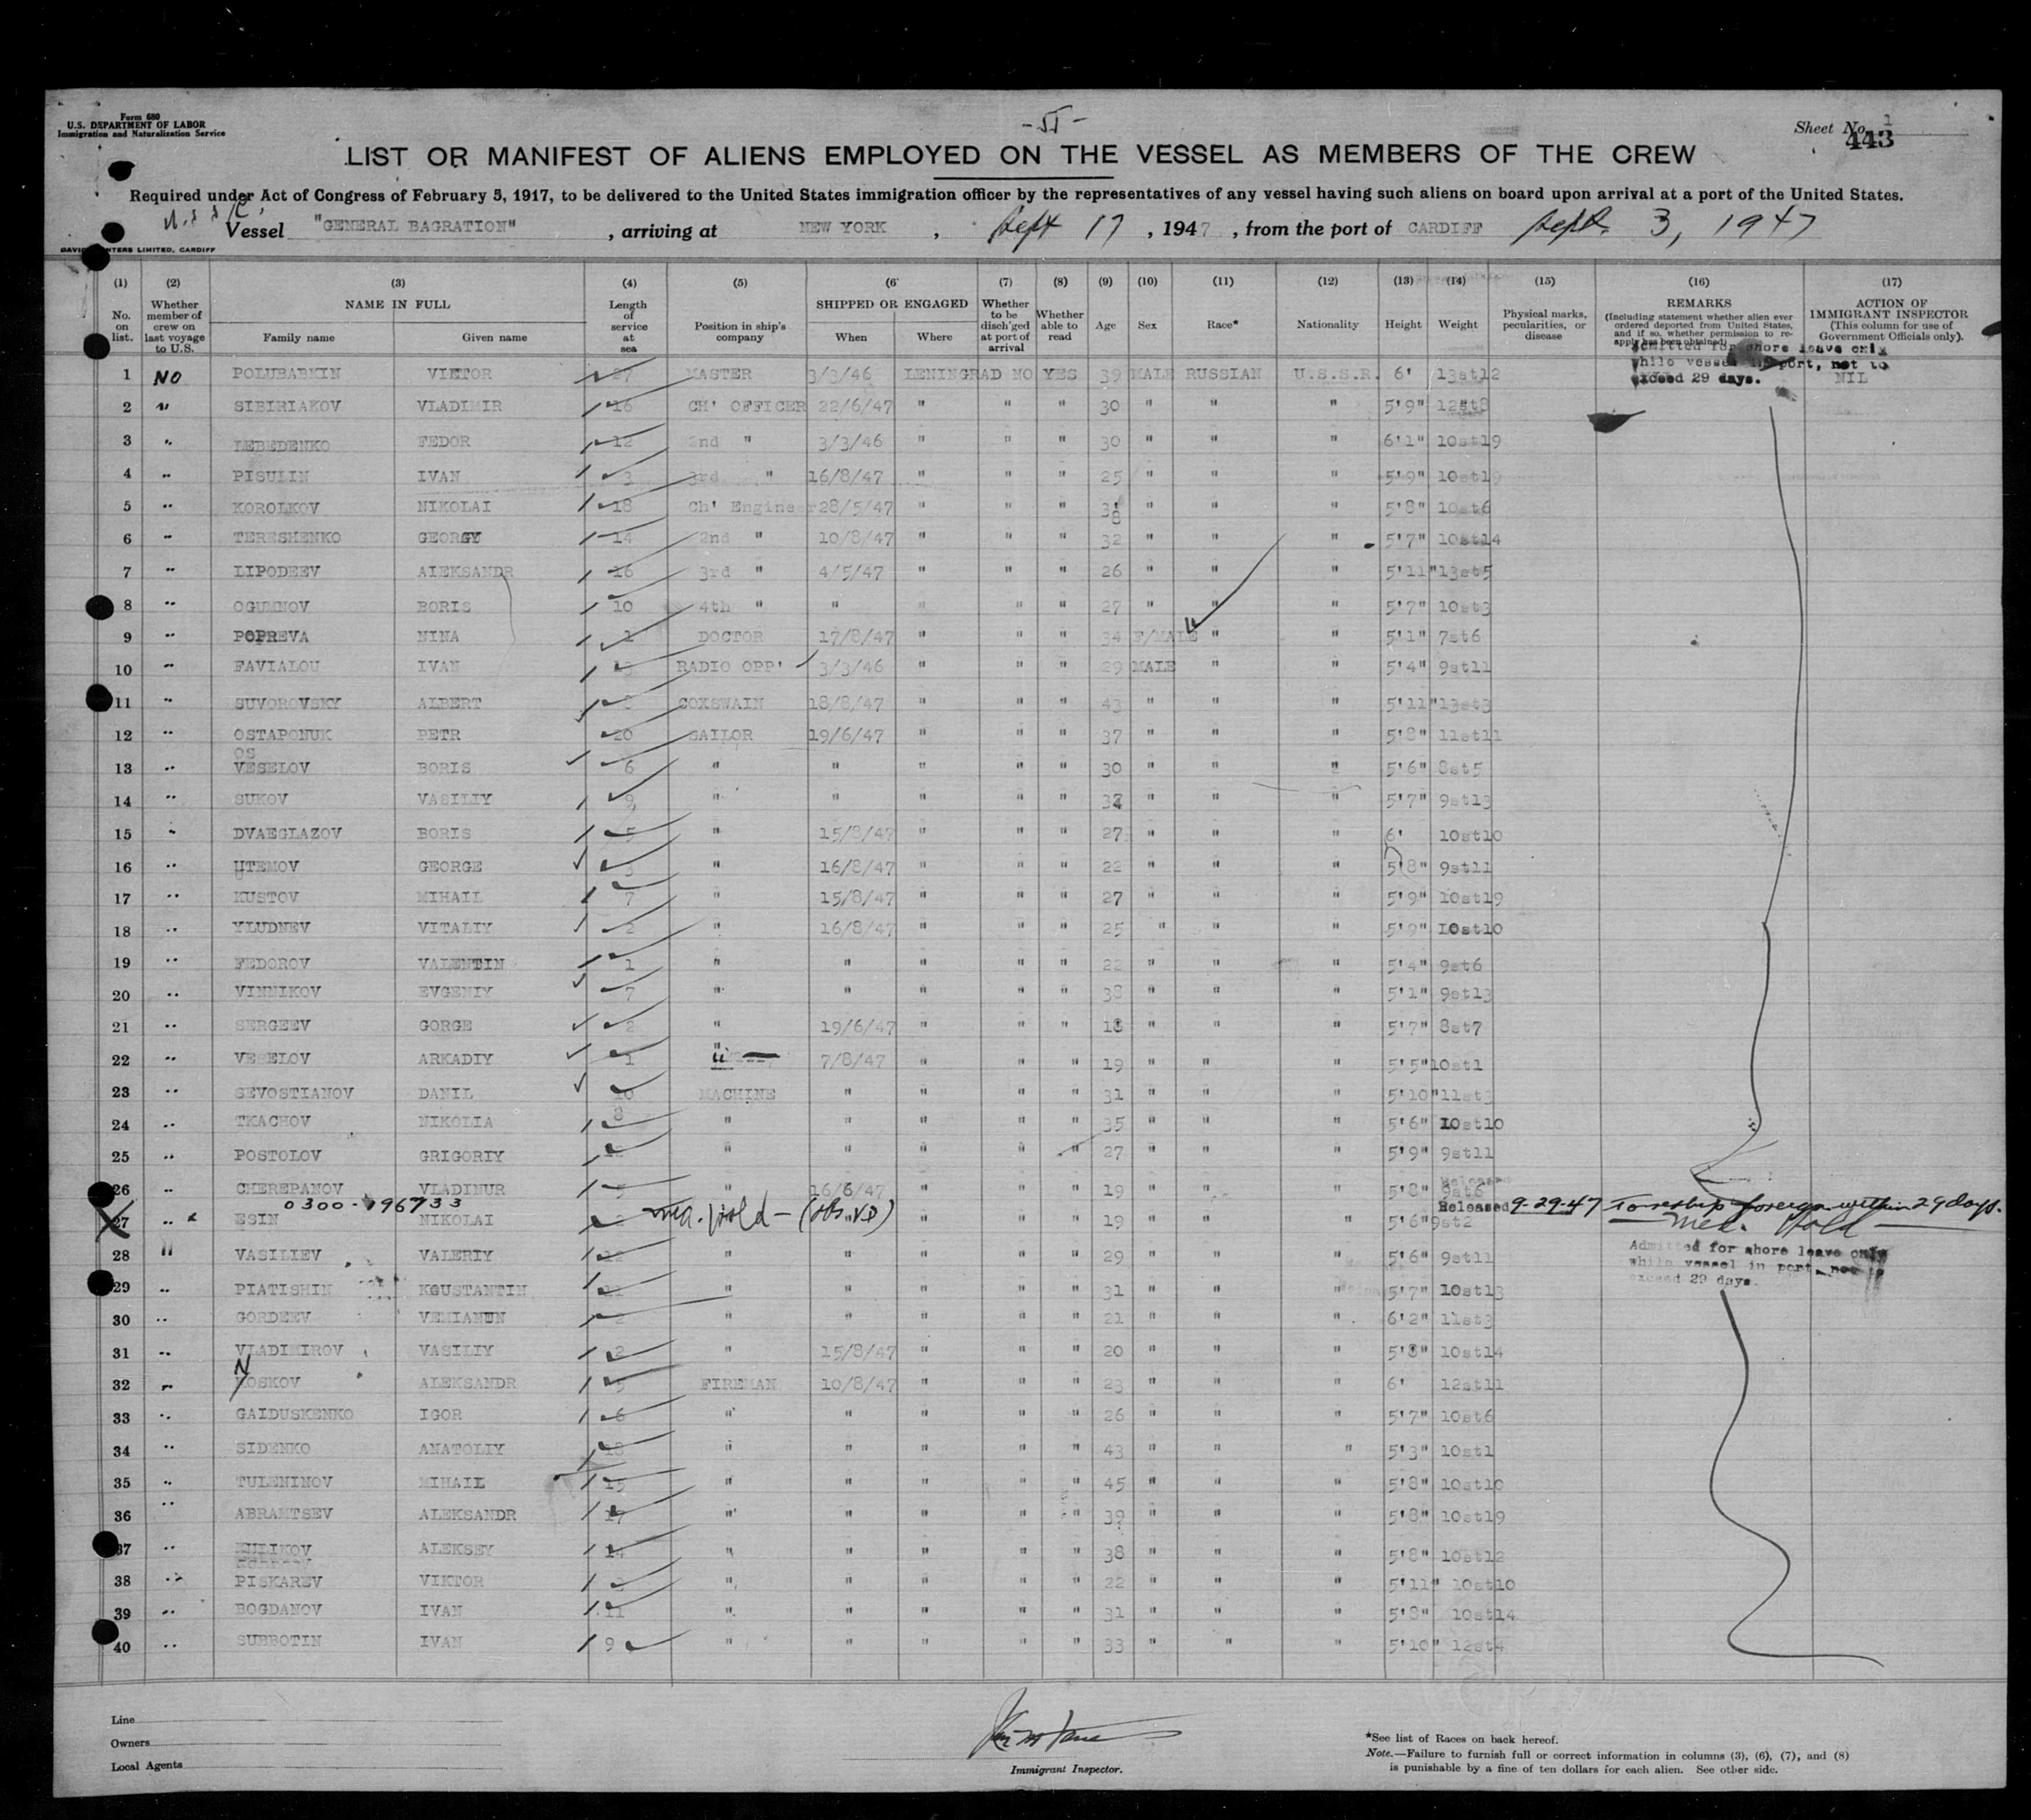 Form 680
U.S. DEPARTMENT OF LABOR
Immigration and Naturalization Service
Sheet No. 1
443
LIST OR MANIFEST OF ALIENS EMPLOYED ON THE VESSEL AS MEMBERS OF THE CREW
Required under Act of Congress of February 5, 1917, to be delivered to the United States immigration officer by the representatives of any vessel having such aliens on board upon arrival at a port of the United States.
Vessel "GENERAL BAGRATION", arriving at NEW YORK, Sept 17, 1947, from the port of CARDIFF Sept. 3, 1947
LIMITED, CARDIFF
(1) (2) (3) (4) (5) (6) (7) (8) (9) (10) (11) (12) (13) (14) (15) (16) (17)
No. on list. Whether member of crew on last voyage to U.S. NAME IN FULL Family name Given name Length of service at sea Position in ship's company SHIPPED OR ENGAGED When Where Whether to be disch'ged at port of arrival Whether able to read Age Sex Race* Nationality Height Weight Physical marks, pecularities, or disease REMARKS (Including statement whether alien ever ordered deported from United States, and if so, whether permission to re-apply has been obtained) ACTION OF IMMIGRANT INSPECTOR (This column for use of Government Officials only).
Admitted for shore leave only
while vessel in port, not to
exceed 29 days.
1 NO POLUBABKIN VIETOR 27 MASTER 3/3/46 LENINGRAD NO YES 39 MALE RUSSIAN U.S.S.R. 6' 13st12 NIL
2 " SIBIRIAKOV VLADIMIR 16 CH' OFFICER 22/6/47 " " " 30 " " " 5'9" 12st8
3 " LEBEDENKO FEDOR 12 2nd " 3/3/46 " " " 30 " " " 6'1" 10st19
4 " PISULIN IVAN 3 3rd " 16/8/47 " " " 25 " " " 5'9" 10st19
5 " KOROLKOV NIKOLAI 18 Ch' Engineer 28/5/47 " " " 38 " " " 5'8" 10st6
6 " TERESHENKO GEORGY 14 2nd " 10/8/47 " " " 32 " " " 5'7" 10st14
7 " LIPODEEV AIEKSANDR 16 3rd " 4/5/47 " " " 26 " " " 5'11" 13st5
8 " BORIS 10 4th " " " " " 27 " " " 5'7" 10st3
9 " POPREVA NINA 1 DOCTOR 17/8/47 " " " 34 F/MALE " " 5'1" 7st6
10 " FAVIALOU IVAN 13 RADIO OPP' 3/3/46 " " " 29 MALE " " 5'4" 9st11
11 " SUVOROVSKY ALBERT COXSWAIN 18/8/47 " " " 43 " " " 5'11" 13st3
12 " OSTAPONUK PETR 20 SAILOR 19/6/47 " " " 37 " " " 5'8" 11st11
13 " VESELOV BORIS 6 " " " " " 30 " " " 5'6" 8st5
14 " SUKOV VASILIY 9 " " " " " " " " 5'7" 9st13
15 " DVAEGLAZOV BORIS 5 " 15/8/47 " " " 27 " " " 6' 10st10
16 " UTEMOV GEORGE 3 " 16/8/47 " " " 22 " " " 5'8" 9st11
17 " KUSTOV MIHAIL 7 " 15/8/47 " " " 27 " " " 5'9" 10st19
18 " YLUDNEV VITALIY 2 " 16/8/47 " " " 25 " " " 5'9" 10st10
19 " FEDOROV VALENTIN 1 " " " " " 22 " " " 5'4" 9st6
20 " VINNIKOV EVGENIY 7 " " " " " 38 " " " 5'1" 9st13
21 " SERGEEV GORGE 2 " 19/6/47 " " " 18 " " " 5'7" 8st7
22 " VESELOV ARKADIY 1 " 7/8/47 " " " 19 " " " 5'5" 10st1
23 " SEVOSTIANOV DANIL 10 MACHINE " " " " 31 " " " 5'10" 11st3
24 " TKACHOV NIKOLIA 8 " " " " " 35 " " " 5'6" 10st10
25 " POSTOLOV GRIGORIY 12 " " " " " 27 " " " 5'9" 9st11
26 " CHEREPANOV VLADINUR 5 " 16/6/47 " " " 19 " " " 5'8" 9st6
0300-196733 Released 9-29-47 To reship foreign within 29 days.
27 " ESIN NIKOLAI Med. Hold - (Obs. VD) " " " 19 " " " 5'6" 9st2 Med. Hold
28 " VASILIEV VALERIY 12 " " " " " 29 " " " 5'6" 9st11
Admitted for shore leave only
while vessel in port, not to
exceed 29 days.
29 " PIATISHIN KGUSTANTIN 11 " " " " " 31 " " " 5'7" 10st13
30 " GORDEEV VENIANUN 2 " " " " " 21 " " " 6'2" 11st3
31 " VLADIMIROV VASILIY 2 " 15/8/47 " " " 20 " " " 5'8" 10st14
32 " NOSKOV ALEKSANDR 5 FIREMAN 10/8/47 " " " 23 " " " 6' 12st11
33 " GAIDUSKENKO IGOR 6 " " " " " 26 " " " 5'7" 10st6
34 " SIDENKO ANATOLIY 18 " " " " " 43 " " " 5'3" 10st1
35 " TULENINOV MIHAIL 15 " " " " " 45 " " " 5'8" 10st10
36 " ABRAMTSEV ALEKSANDR 17 " " " " " 39 " " " 5'8" 10st19
37 " KUDIKOV ALEKSEY 14 " " " " " 38 " " " 5'8" 10st12
38 " PISKAREV VIKTOR 3 " " " " " 22 " " " 5'11" 10st10
39 " BOGDANOV IVAN 11 " " " " " 31 " " " 5'8" 10st14
40 " SUBBOTIN IVAN 9 " " " " " 33 " " " 5'10" 12st4
Line
Owners
Local Agents
Immigrant Inspector.
*See list of Races on back hereof.
Note.—Failure to furnish full or correct information in columns (3), (6), (7), and (8)
is punishable by a fine of ten dollars for each alien. See other side.